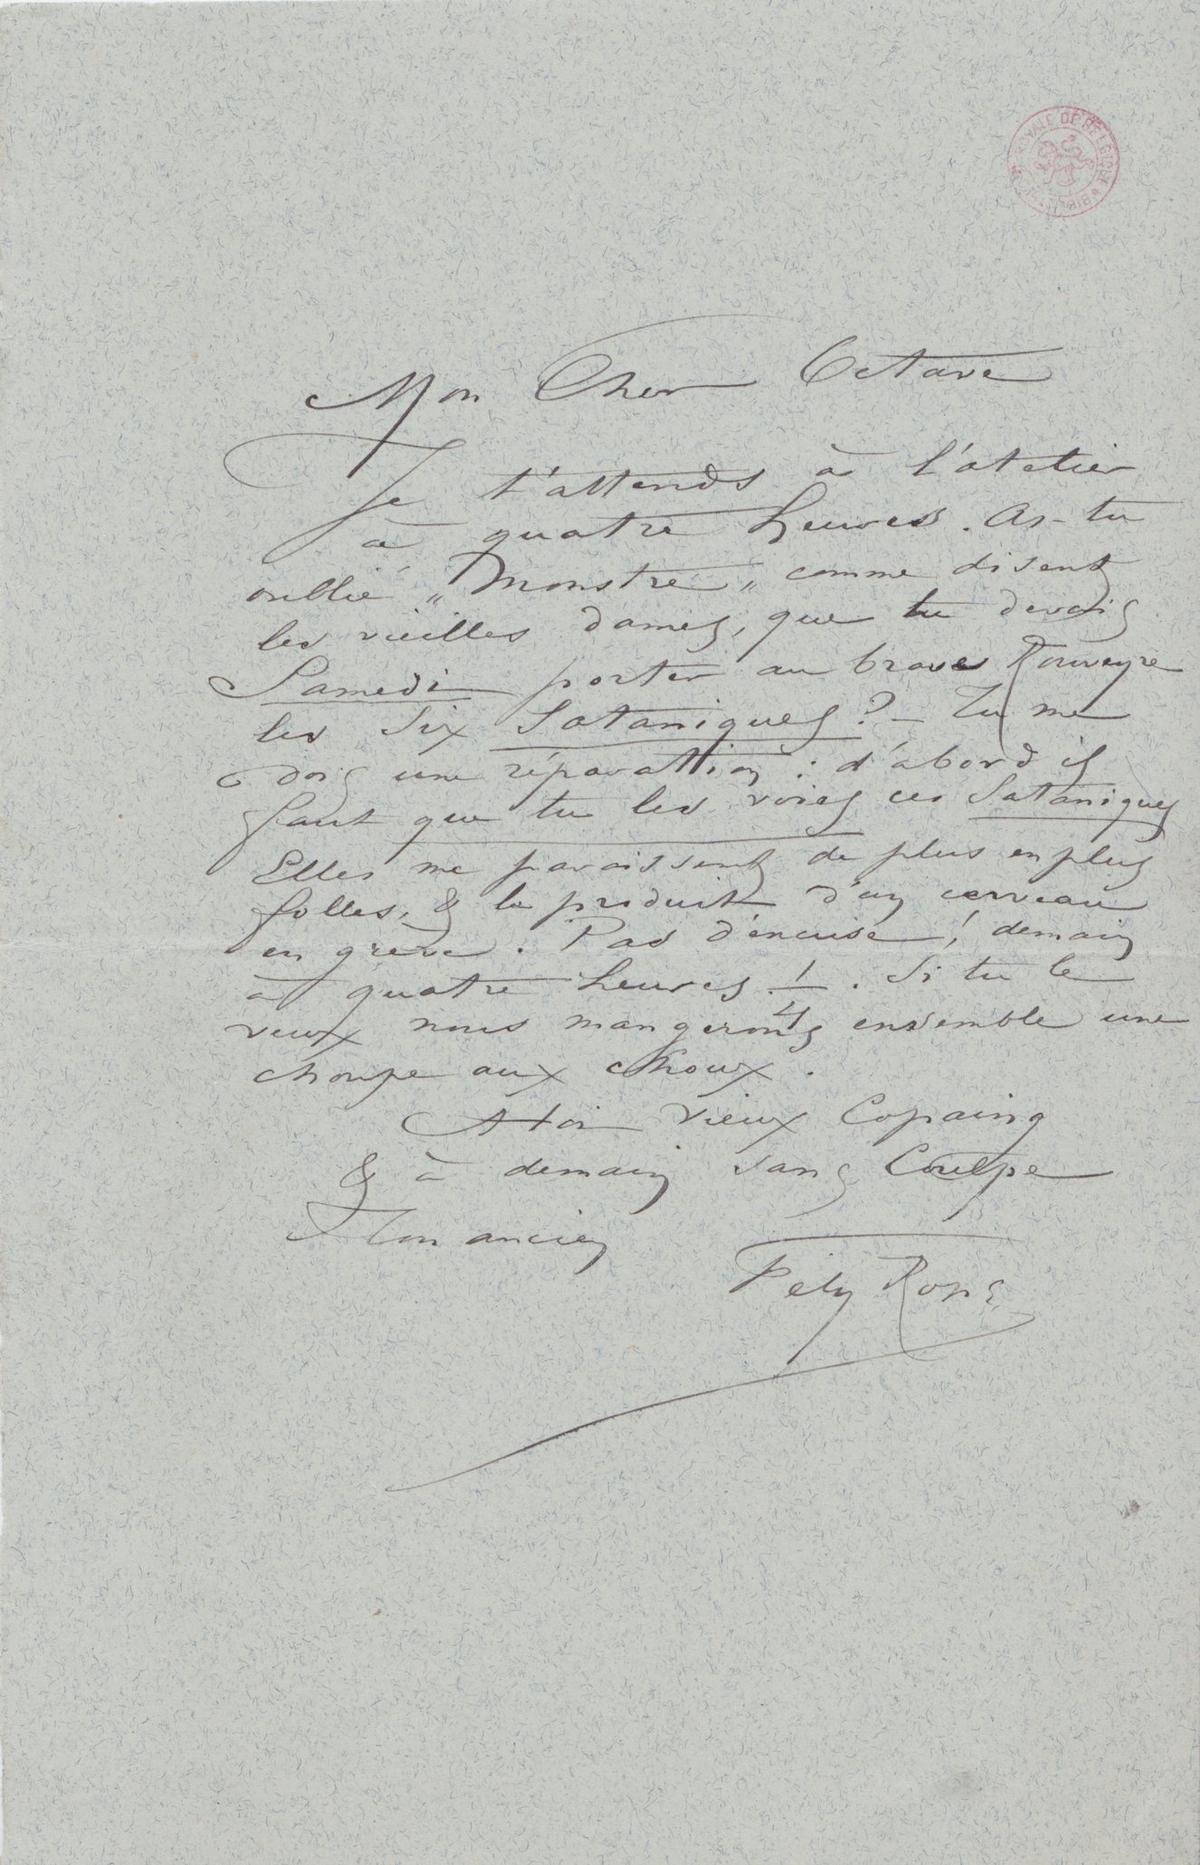 Mon Cher Octave
Je t'attends à l'atelier
à quatre heures. As-tu
oublié „Monstre„ comme disent
les vieilles dames, que tu devais
Samedi porter au brave Rouveyre
les six Sataniques? – Tu me
dois une réparation : d'abord il
faut que tu les voies ces Sataniques
Elles me paraissent de plus en plus
folles, & le produit d'un cerveau
en grève. Pas d'excuse! demain
à quatre heures 1/4. Si tu le
veux nous mangerons ensemble une
choupe aux choux.
A toi vieux Copaing
& à demain sans Coulpe
Ton ancien
Fély Rops